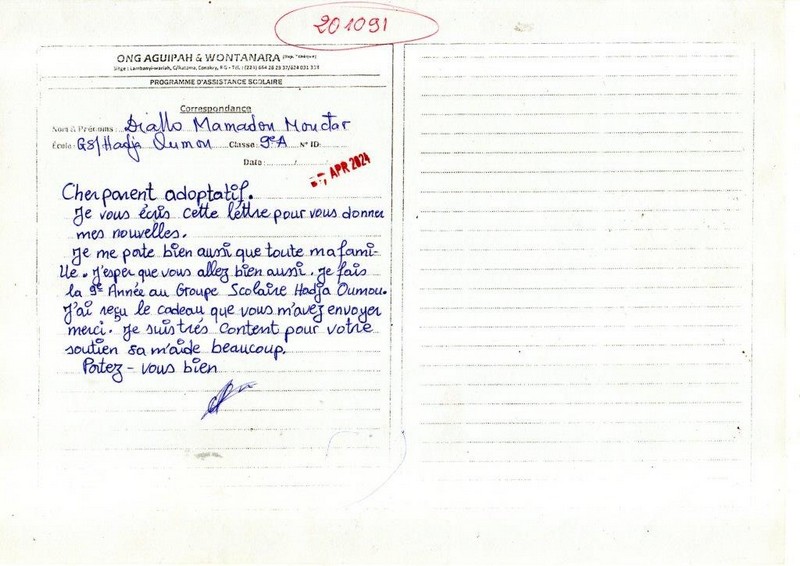 201091
ONG AGUIPAH & WONTANARA
PROGRAMME D'ASSISTANCE SCOLAIRE
Correspondance
Nom & Prénoms : Diallo Mamadou Mouctar
École : GS/Hadja Oumou Classe : 9eA N° ID:
Date : / /
APR 2024
Cher parent adoptatif.
Je vous écris cette lettre pour vous donner
mes nouvelles.
Je me porte bien aussi que toute ma fami-
lle. J'esper que vous allez bien aussi. Je fais
la 9e Année au Groupe Scolaire Hadja Oumou.
J'ai reçu le cadeau que vous m'avez envoyer
merci. Je suis trés content pour votre
soutien sa m'aide beaucoup.
Portez-vous bien